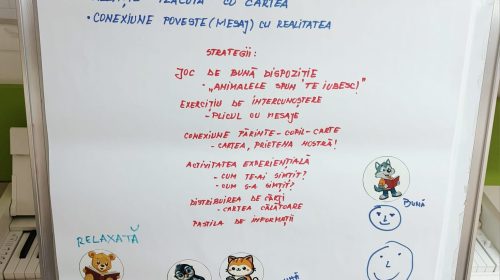 PLĂCUTĂ CU CARTEA
• CONEXIUNE POVESTE (MESAJ) CU REALITATEA
STRATEGII:
JOC DE BUNĂ DISPOZIȚIE
- „ANIMALELE SPUN "TE IUBESC!"
EXERCIȚIU DE INTERCUNOȘTERE
- PLICUL CU MESAJE
CONEXIUNE PĂRINTE - COPIL - CARTE
- CARTEA, PRIETENA NOSTRĂ!
ACTIVITATEA EXPERIENȚIALĂ
- CUM TE-AI SIMȚIT?
- CUM S-A SIMȚIT?
DISTRIBUIREA DE CĂRȚI
- CARTEA CĂLĂTOARE
PASTILA DE INFORMAȚII
BUNĂ
RELAXATĂ